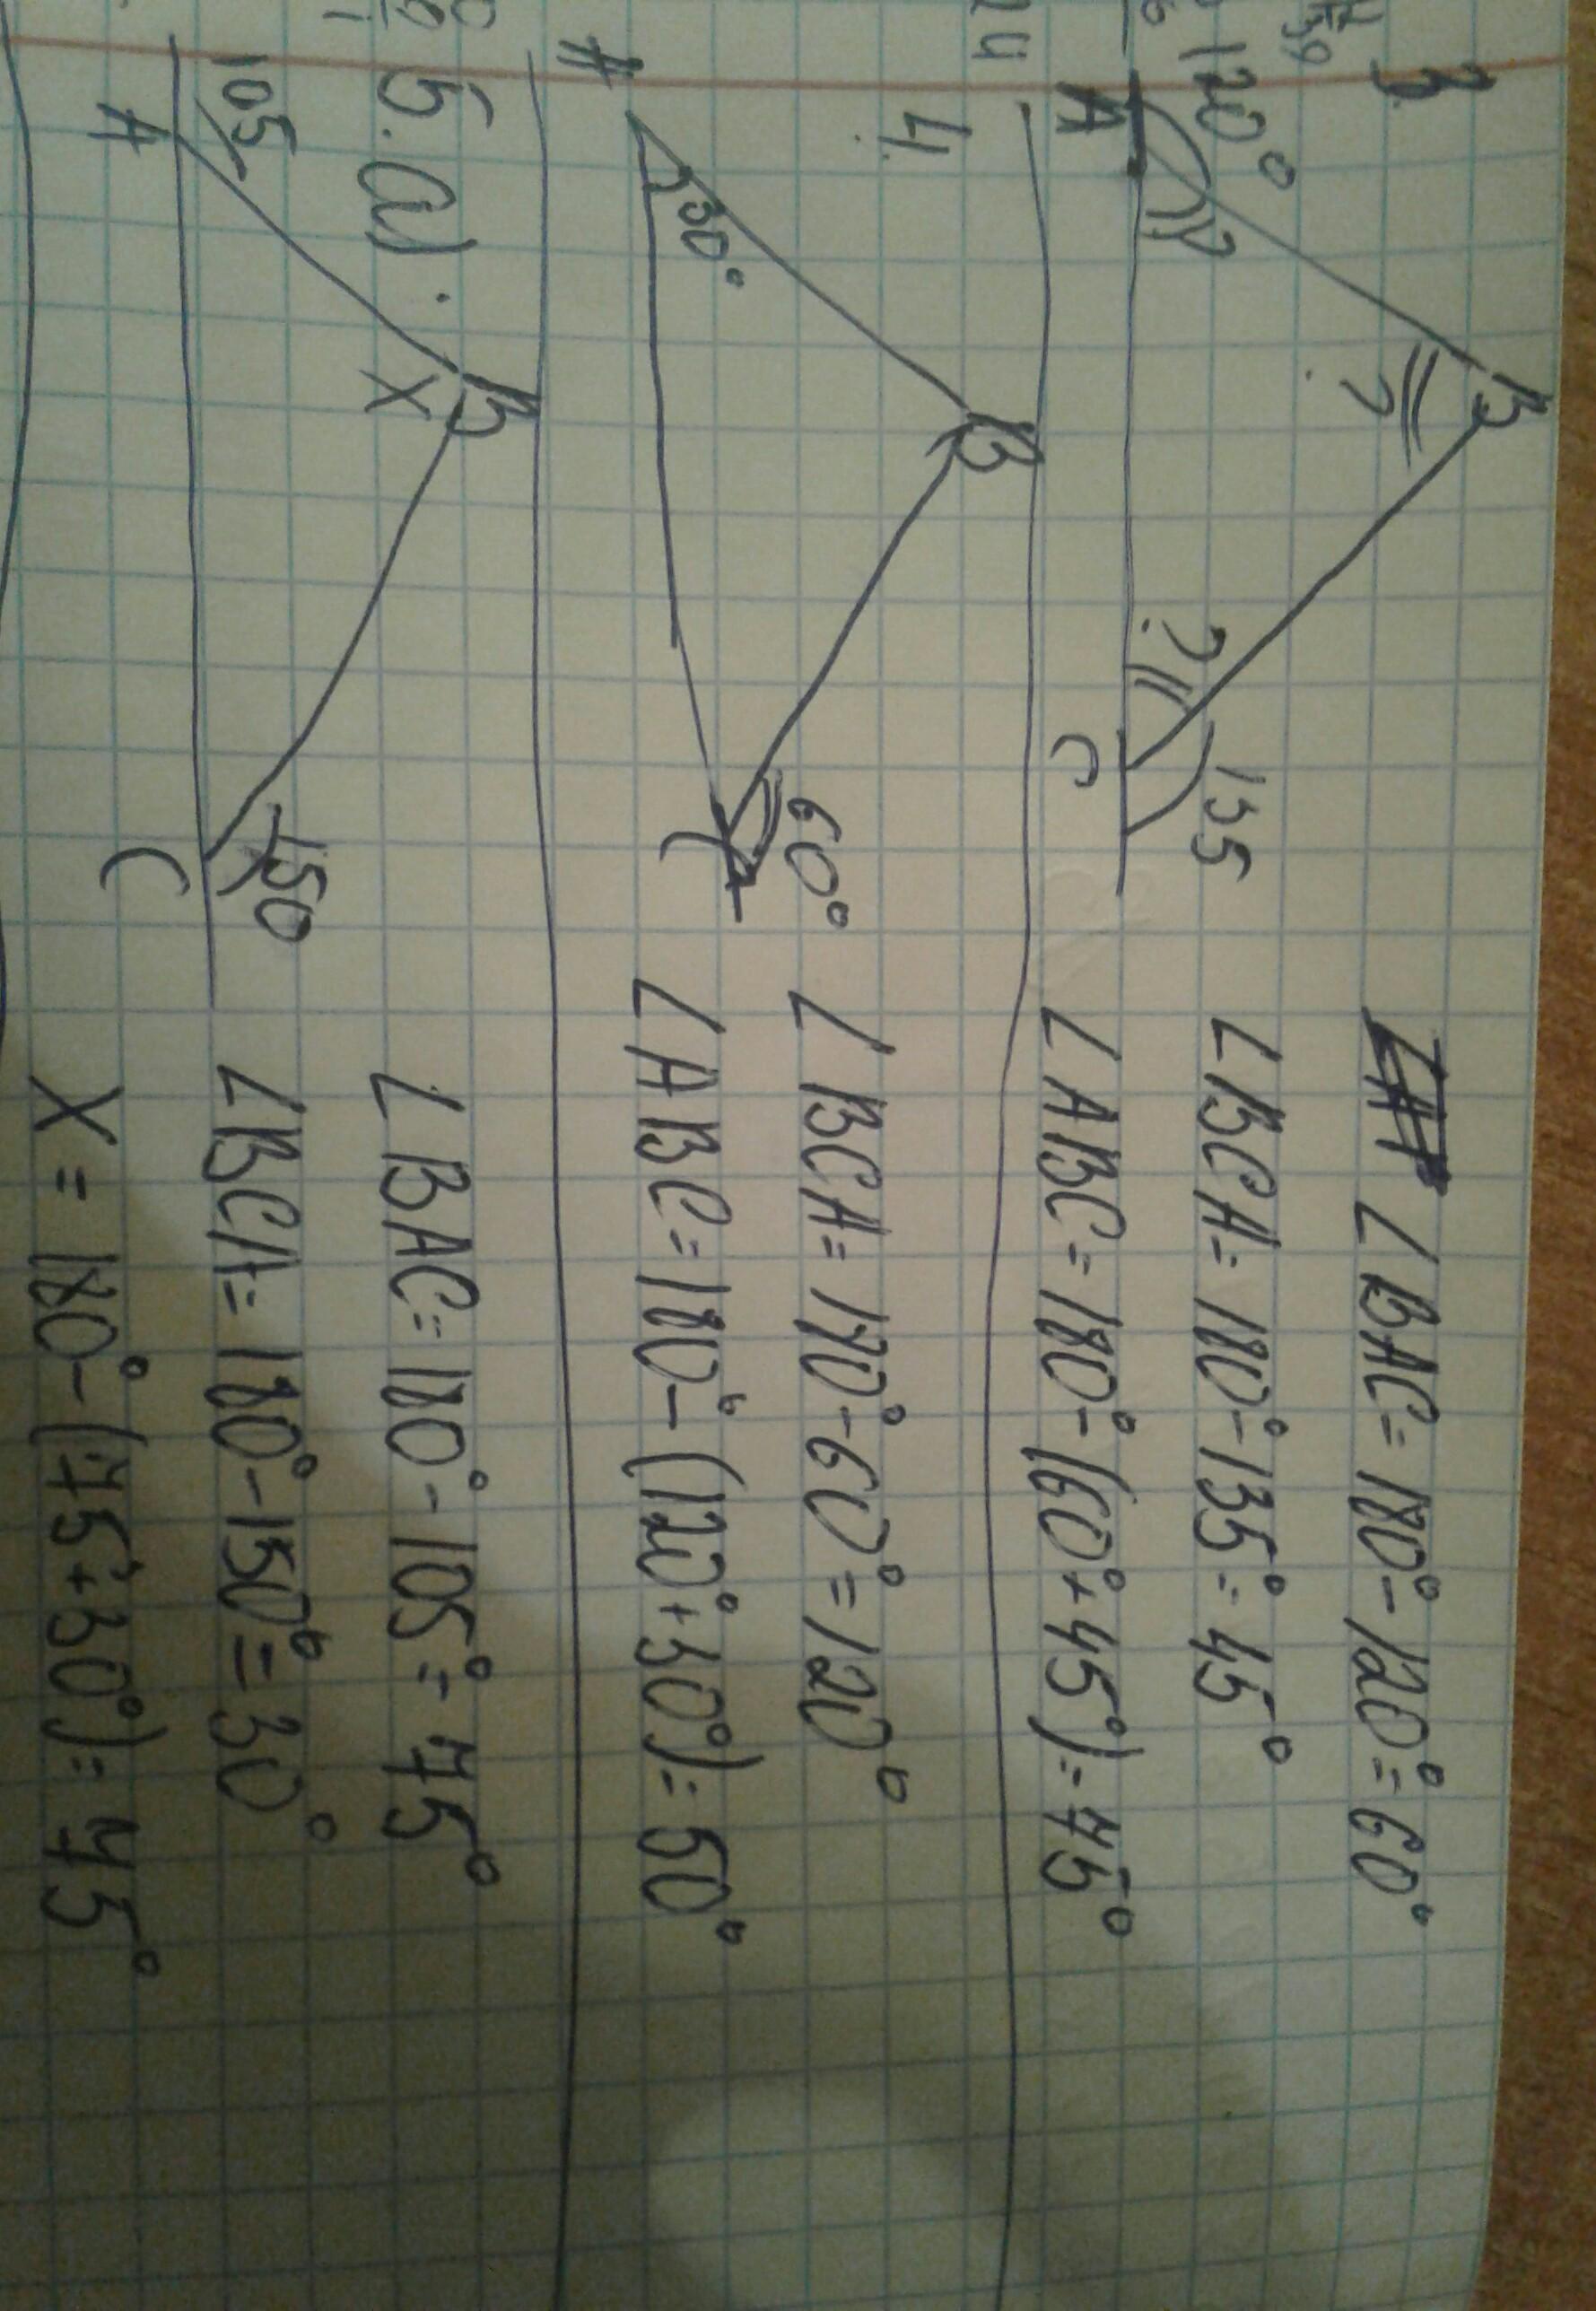 3.
B
120°
?
?
?
135
A
C
∠BAC=180°-120°=60°
∠BCA=180°-135°=45°
∠ABC=180°-(60°+45°)=75°
24
4.
B
30°
60°
A
C
∠BCA=180°-60°=120°
∠ABC=180°-(120°+30°)=30°
5. a).
B
X
105
150
A
C
∠BAC=180°-105°=75°
∠BCA=180°-150°=30°
X=180°-(75°+30°)=75°